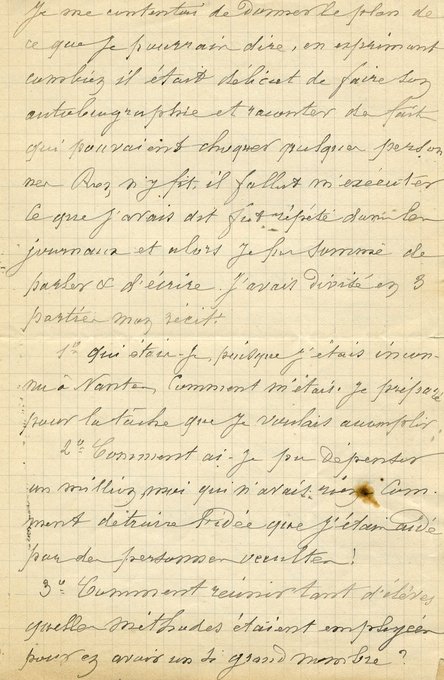 Je me contentais de donner le plan de
ce que je pourrais dire, en exprimant
combien il était délicat de faire son
autobiographie et raconter de fait
qui pouvaient choquer quelques person
nes Rien n'y fit, il fallut m'exécuter
Ce que j'avais dit fut répété dans les
journaux et alors je fus sommé de
parler & d'écrire. J'avais divisé en 3
parties mon récit.
1º qui étais-je, puisque j'étais incon-
nu à Nantes, Comment m'étais-je préparé
pour la tâche que je voulais accomplir.
2º Comment ai-je pu dépenser
un million, moi qui n'avais rien Com-
ment détruire l'idée que j'étais aidé
par des personnes occultes!
3º Comment réunir tant d'élèves
quelles méthodes étaient employées
pour en avoir un si grand nombre?